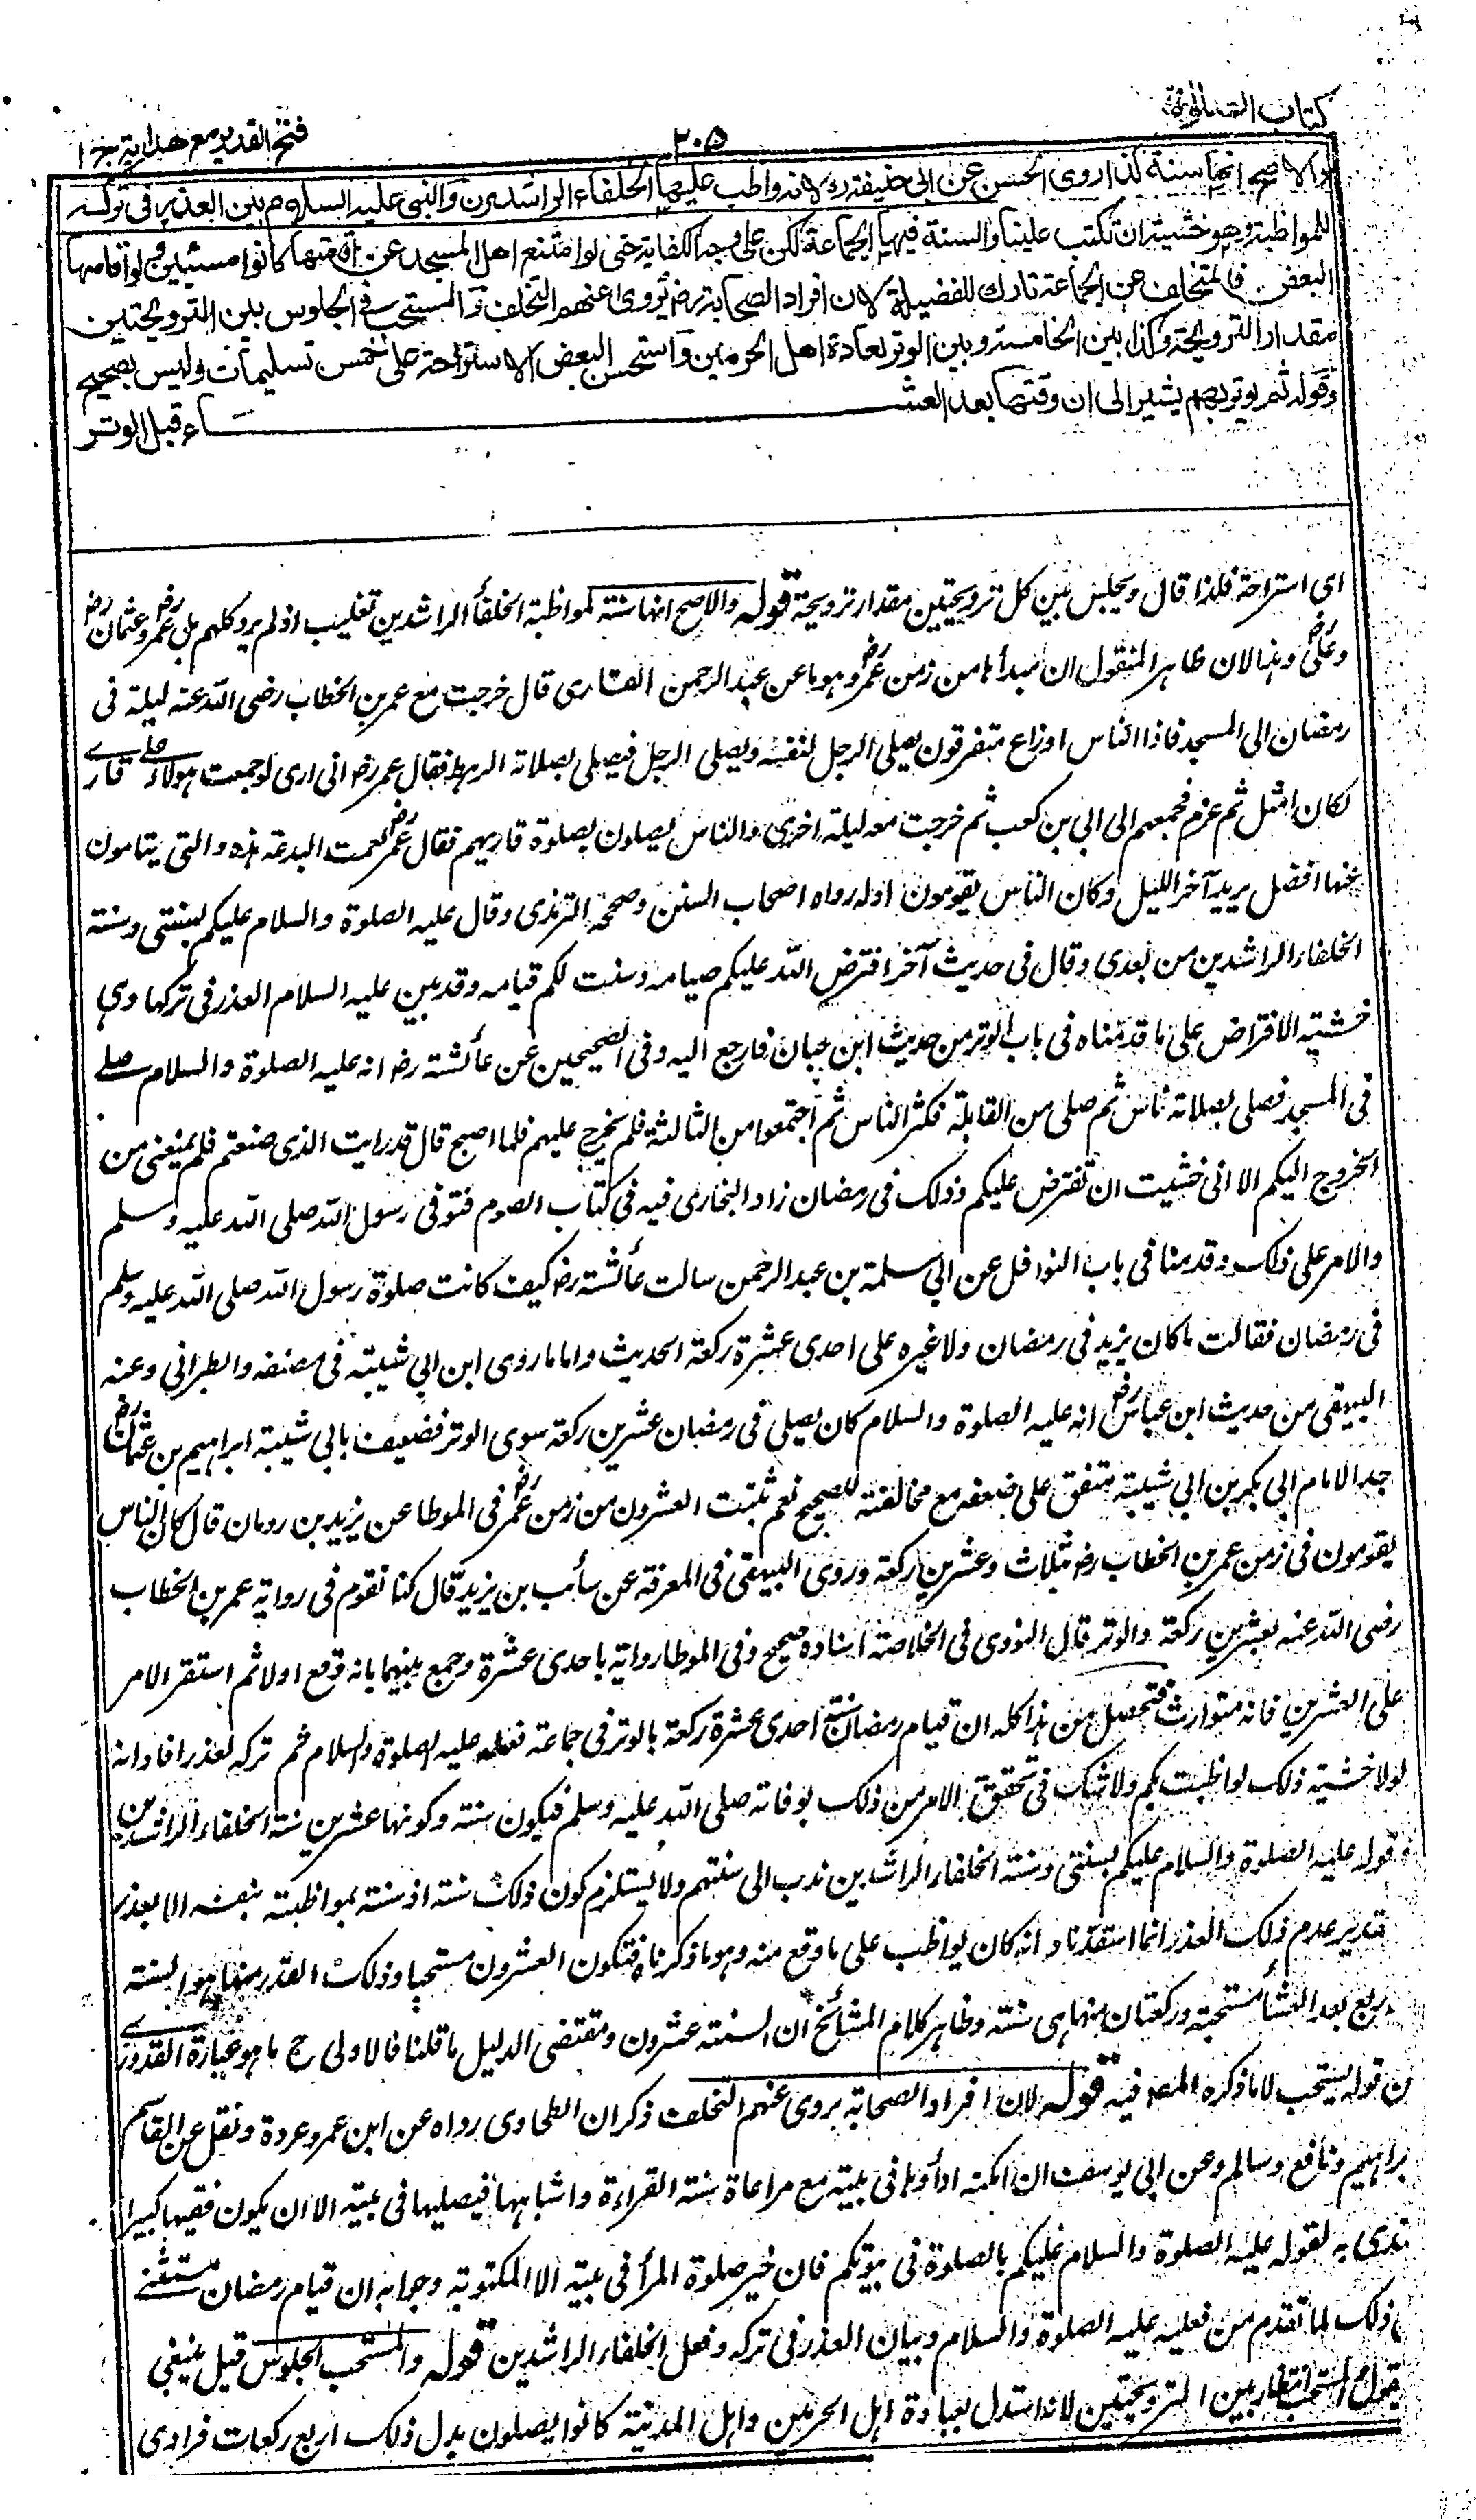 كتاب الصلوة
٢٠٥
فتح القدير مع هداية ج ١
والاصح انها سنة كذا روى الحسن عن ابى حنيفة ره لانه واظب عليها الخلفاء الراشدون والنبى عليه السلام بين العذر فى تركه
للمواظبة وهو خشية ان تكتب علينا والسنة فيها الجماعة لكن على وجه الكفاية حتى لو امتنع اهل المسجد عن اقامتها كانوا مسيئين ولو اقامها
البعض فالمتخلف عن الجماعة تارك للفضيلة لان افراد الصحابة رض يروى عنهم التخلف والمستحب فى الجلوس بين الترويحتين
مقدار الترويحة وكذا بين الخامسة وبين الوتر لعادة اهل الحرمين واستحسن البعض الاستراحة على خمس تسليمات وليس بصحيح
وقوله ثم يوتر بهم يشير الى ان وقتها بعد العشاء قبل الوتر
اى استراحة فلذا قال ويجلس بين كل ترويحتين مقدار ترويحة قوله والاصح انها سنة لمواظبة الخلفأ الراشدين تغليب اذ لم يرد كلهم بل عمر رض وعثمان رض
وعلى رض وهذا لان ظاهر المنقول ان مبدأها من زمن عمر رض وهو ما عن عبد الرحمن القارى قال خرجت مع عمر بن الخطاب رضى الله عنه ليلة فى
رمضان الى المسجد فاذا الناس اوزاع متفرقون يصلى الرجل لنفسه ويصلى الرجل فيصلى بصلاته الرهط فقال عمر رض انى ارى لو جمعت هولاء على قارے
لكان امثل ثم عزم فجمعهم الى ابى بن كعب ثم خرجت معه ليلة اخرى والناس يصلون بصلوة قاريهم فقال عمر رض نعمت البدعة هذه والتى ينامون
عنها افضل يريد آخر الليل وكان الناس يقومون اوله رواه اصحاب السنن وصححه الترمذى وقال عليه الصلوة والسلام عليكم بسنتى وسنة
الخلفاء الراشدين من بعدى وقال فى حديث آخر افترض الله عليكم صيامه وسننت لكم قيامه وقد بين عليه السلام العذر فى تركها وهى
خشية الافتراض على ما قدمناه فى باب الوتر من حديث ابن حبان فارجع اليه وفى الصحيحين عن عائشة رض انه عليه الصلوة والسلام صلے
فى المسجد فصلى بصلاته ناس ثم صلى من القابلة فكثر الناس ثم اجتمعوا من الثالثة فلم يخرج عليهم فلما اصبح قال قد رايت الذى صنعتم فلم يمنعنى من
الخروج اليكم الا انى خشيت ان تفترض عليكم وذلك فى رمضان زاد البخارى فيه فى كتاب الصوم فتوفى رسول الله صلى الله عليه وسلم
والامر على ذلك وقد منا فى باب النوافل عن ابى سلمة بن عبد الرحمن سالت عائشة رض كيف كانت صلوة رسول الله صلى الله عليه وسلم
فى رمضان فقالت ما كان يزيد فى رمضان ولا غيره على احدى عشرة ركعة الحديث واما ما روى ابن ابى شيبة فى مصنفه والطبرانى وعنه
البيهقى من حديث ابن عباس رض انه عليه الصلوة والسلام كان يصلى فى رمضان عشرين ركعة سوى الوتر فضعيف بابى شيبة ابراهيم بن عثمان رض
جد الامام ابى بكر بن ابى شيبة متفق على ضعفه مع مخالفته للصحيح نعم ثبتت العشرون من زمن عمر رض فى الموطا عن يزيد بن رومان قال كان الناس
يقومون فى زمن عمر بن الخطاب رض بثلاث وعشرين ركعة وروى البيهقى فى المعرفة عن سائب بن يزيد قال كنا نقوم فى رواية عمر بن الخطاب
رضى الله عنه بعشرين ركعة والوتر قال النووى فى الخلاصة اسناده صحيح وفى الموطا رواية باحدى عشرة وجمع بينهما بانه وقع اولا ثم استقر الامر
على العشرين فانه متوارث فتحصل من هذا كله ان قيام رمضان سنة احدى عشرة ركعة بالوتر فى جماعة فعله عليه الصلوة والسلام ثم تركه لعذر افاد انه
لولا خشية ذلك لواظبت بكم ولا شك فى تحقق الامر من ذلك بوفاته صلى الله عليه وسلم فيكون سنة وكونها عشرين سنة الخلفاء الراشدين
وقوله عليه الصلوة والسلام عليكم بسنتى وسنة الخلفاء الراشدين ندب الى سنتهم ولا يستلزم كون ذلك سنة اذ سنة بمواظبته بنفسه الا بعذر
قدير عدم ذلك العذر انما استفدنا انه كان يواظب على ما وقع منه وهو ما ذكرناه فتكون العشرون مستحبا وذلك القدر منها هو السنة
ربع بعد العشأ مستحبة وركعتان منها هى سنة وظاهر كلام المشائخ ان السنة عشرون ومقتضى الدليل ما قلنا فالاولى ح ما هو عبارة القدورے
ن قوله يستحب لا ما ذكره المصر فيه قوله لان افراد الصحابة يروى عنهم التخلف ذكر ان الطحاوى رواه عن ابن عمر وعروة ونقل عن القاسم
براهيم ونافع وسالم وعن ابى يوسف ان امكنه اداؤها فى بيته مع مراعاة سنة القراءة واشباهها فيصليها فى بيته الا ان يكون فقيها كبيرا
تدى به لقوله عليه الصلوة والسلام عليكم بالصلوة فى بيوتكم فان خير صلوة المرأ فى بيته الا المكتوبة وجوابه ان قيام رمضان مستثنے
ن ذلك لما تقدم من فعليه عليه الصلوة والسلام وبيان العذر فى تركه وفعل الخلفاء الراشدين قوله والمستحب الجلوس قيل ينبغى
يقول المستحب انتظار بين الترويحتين لانه استدل بعبادة اهل الحرمين واهل المدينة كانوا يصلون بدل ذلك اربع ركعات فرادى